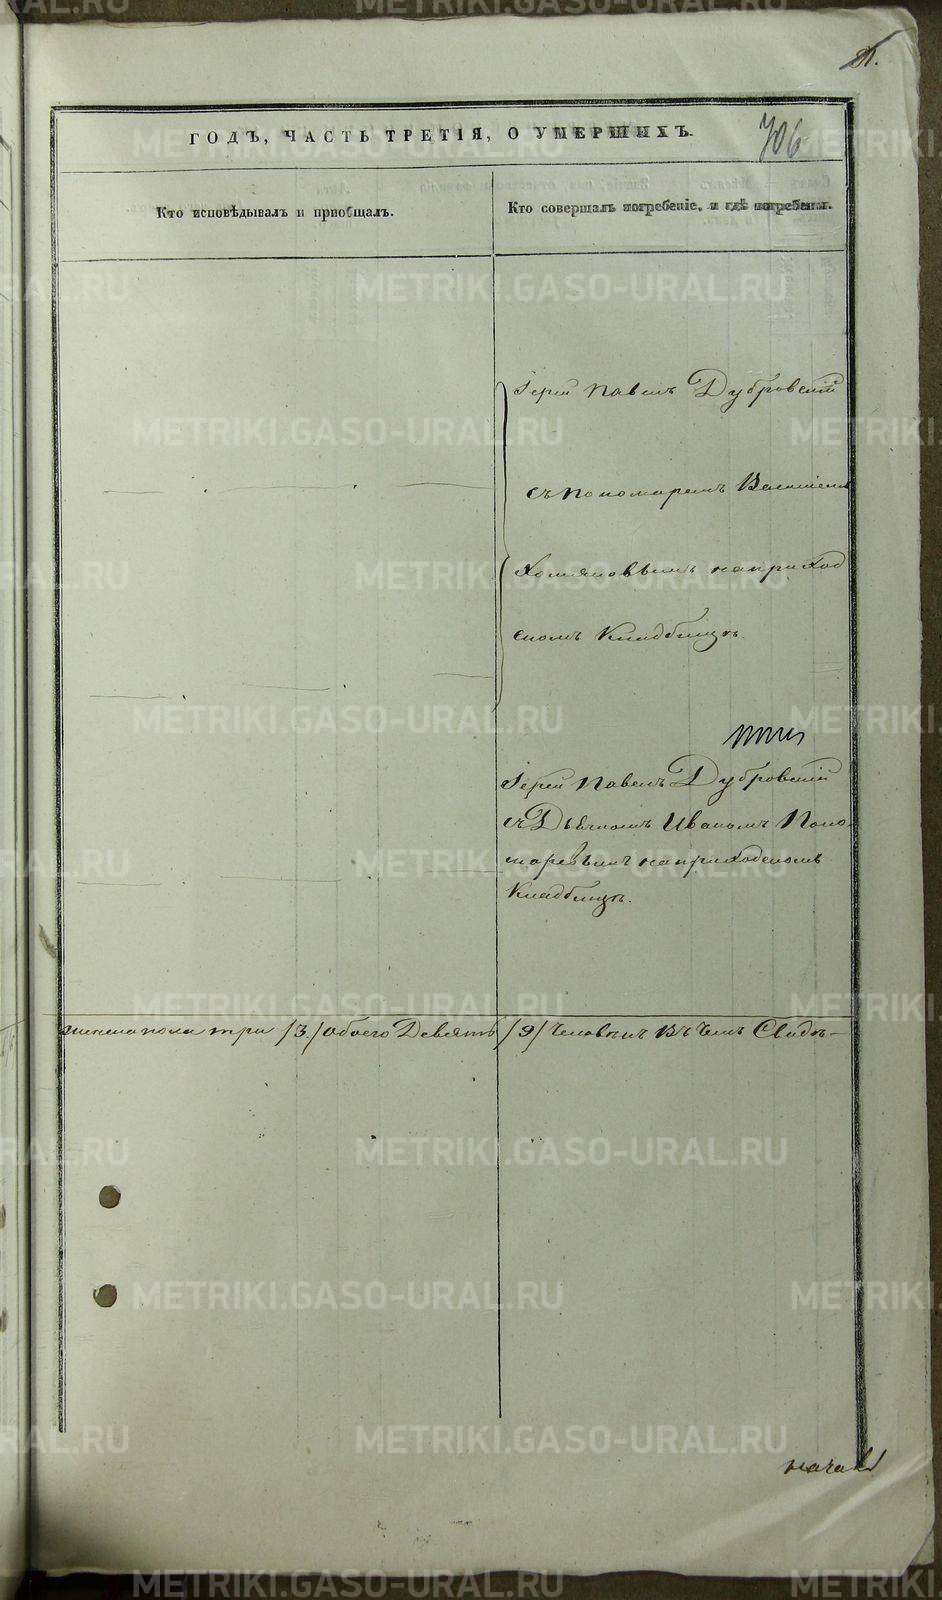 706
ГОДЪ, ЧАСТЬ ТРЕТІЯ, О УМЕРШИХЪ.
Кто исповѣдывалъ и пріобщалъ.
Кто совершалъ погребеніе, и гдѣ погребены.
Іерей Павелъ Дубровскій
съ пономаремъ Василіемъ
Хомяковымъ на приход
скомъ Кладбищѣ.
Іерей Павелъ Дубровскій
съ Дьячкомъ Иваномъ Поно
маревымъ на приходскомъ
Кладбищѣ.
женска пола три /3/ Обоего Девять /9/ Человѣкъ Въ Чемъ Свидѣ-
METRIKI.GASO-URAL.RU